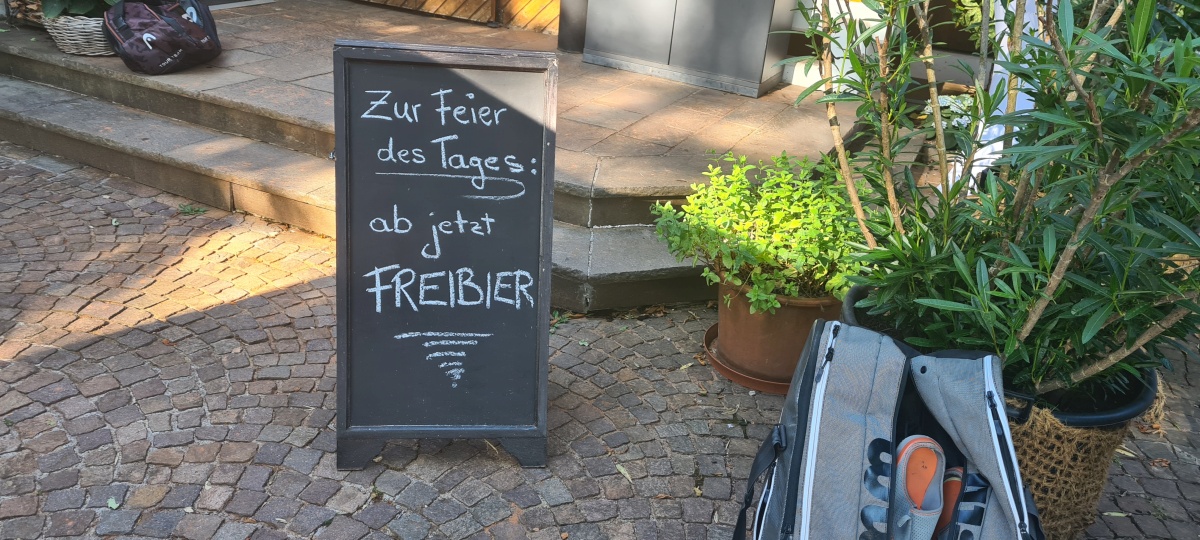 Zur Feier
des Tages:
ab jetzt
FREIBIER